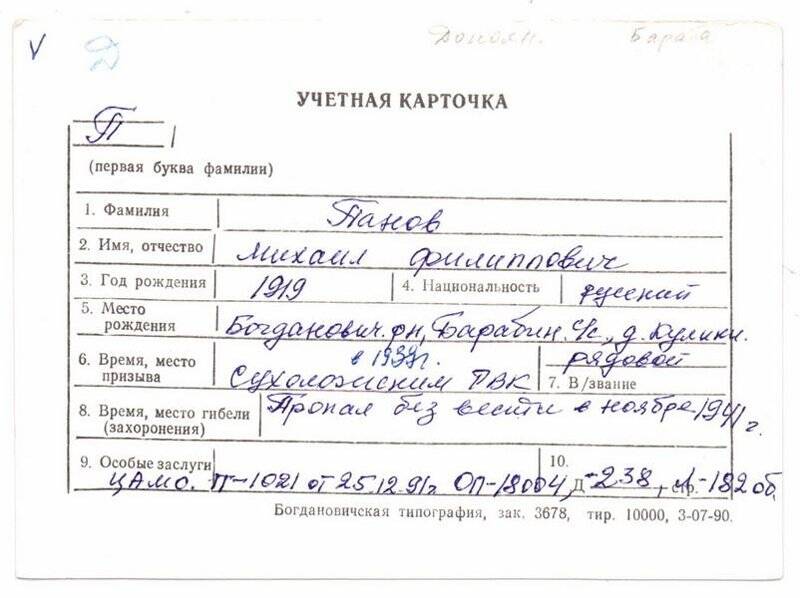 V Д Дополн. Бараба
УЧЕТНАЯ КАРТОЧКА
П
(первая буква фамилии)
1. Фамилия Панов
2. Имя, отчество Михаил Филиппович
3. Год рождения 1919 4. Национальность русский
5. Место
рождения Богданович. рн, Барабин. с/с, д. Кулики.
6. Время, место в 1939г. рядовой
призыва Сухоложским РВК 7. В/звание
8. Время, место гибели Пропал без вести в ноябре 1941 г.
(захоронения)
9. Особые заслуги 10.
ЦАМО. П-1021 от 25.12.91г ОП-18004, Д-238, Л-182 об.
Богдановичская типография, зак. 3678, тир. 10000, 3-07-90.